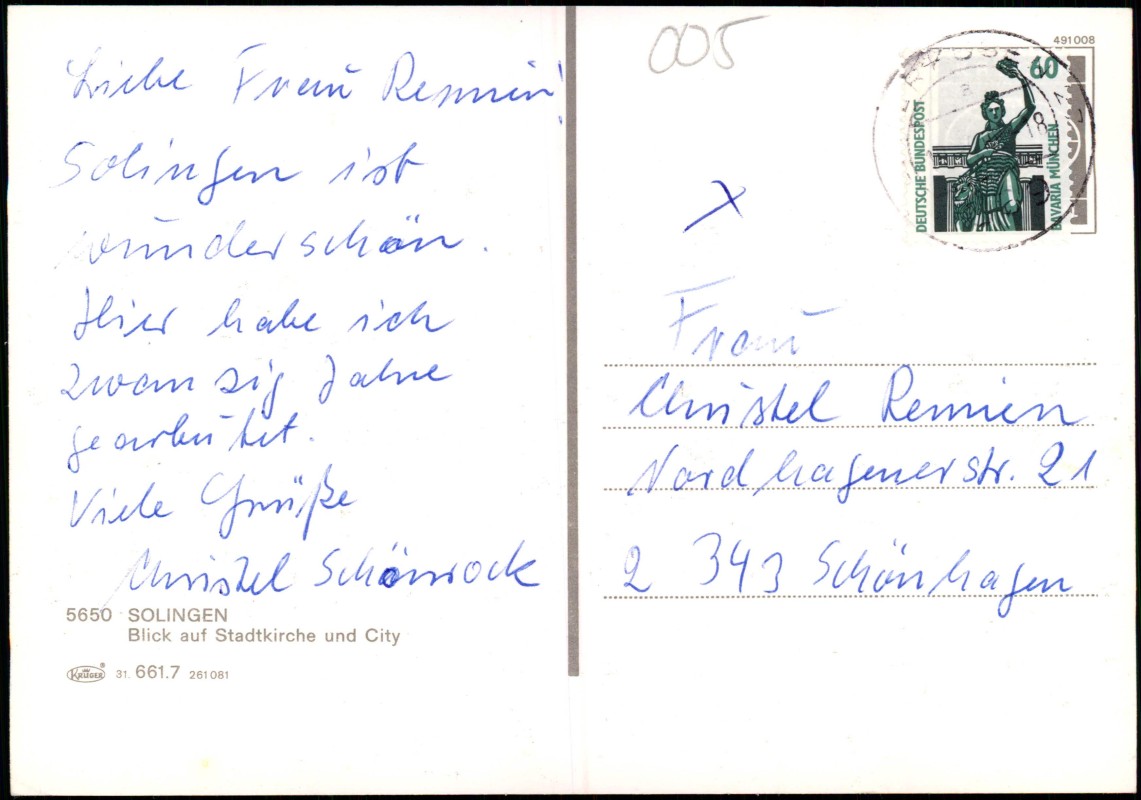 Liebe Frau Remmien!
Solingen ist
wunderschön.
Hier habe ich
zwanzig Jahre
gearbeitet.
Viele Grüße
Christel Schönrock
5650 SOLINGEN
Blick auf Stadtkirche und City
KRÜGER® 31. 661.7 261081
005
491008
60
DEUTSCHE BUNDESPOST
BAVARIA MÜNCHEN
Frau
Christel Remmien
Nordhagenerstr. 21
2343 Schönhagen